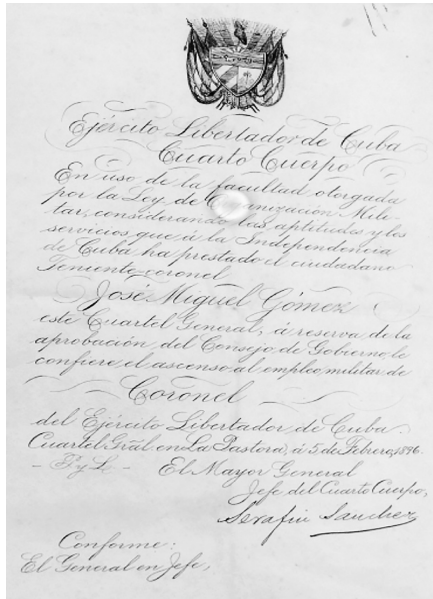 Ejército Libertador de Cuba
Cuarto Cuerpo
En uso de la facultad otorgada
por la Ley de Organización Mili-
tar, considerando las aptitudes y los
servicios que á la Independencia
de Cuba ha prestado el ciudadano
Teniente-coronel
José Miguel Gómez
este Cuartel General, á reserva de la
aprobación del Consejo de Gobierno, le
confiere el ascenso al empleo militar de
Coronel
del Ejército Libertador de Cuba.
Cuartel Gral. en La Pastora, á 5 de Febrero, 1896.
- P. y L. - El Mayor General
Jefe del Cuarto Cuerpo,
Serafin Sanchez
Conforme:
El General en Jefe,